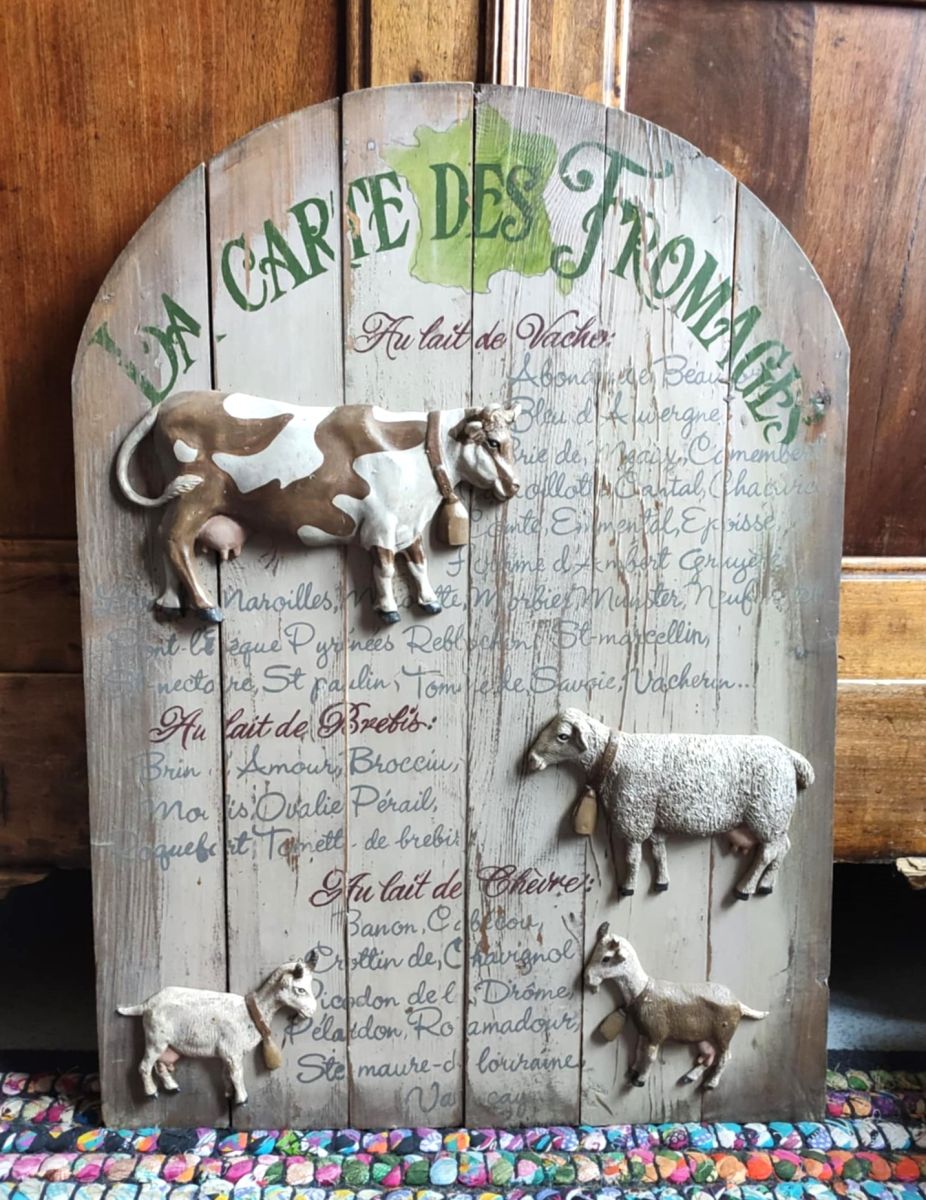 La Carte des Fromages
Au lait de Vache:
Abondance, Beaufort
Bleu d'Auvergne
Brie de Meaux, Camembert
Cantal, Chaource
Comté, Emmental, Epoisse,
Fourme d'Ambert Gruyère
Maroilles, Mimolette, Morbier, Munster, Neufchatel
Pont-l'Evêque Pyrénées Reblochon, St-marcellin,
St-nectaire, St paulin, Tomme de Savoie, Vacherin...
Au lait de Brebis:
Brin d'Amour, Brocciu,
Ovalie Pérail,
Roquefort Tomette de brebis
Au lait de Chèvre:
Banon, Cabécou,
Crottin de Chavignol
Picodon de la Drôme,
Pélardon, Rocamadour,
Ste maure-de louraine,
Valençay